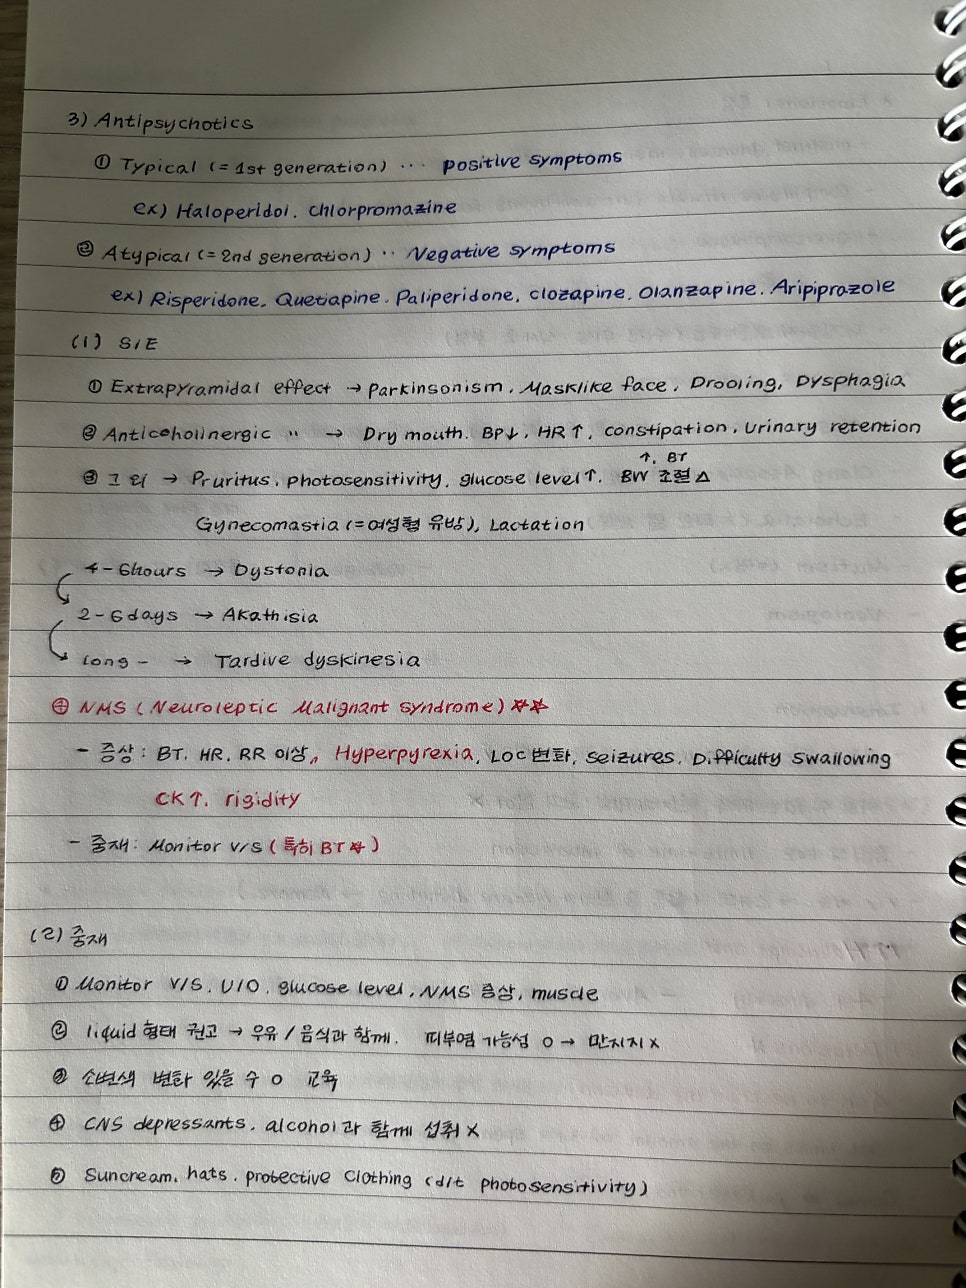 3) Antipsychotics
① Typical (= 1st generation) ··· positive symptoms
ex) Haloperidol. chlorpromazine
② Atypical (= 2nd generation) ·· Negative symptoms
ex) Risperidone. Quetiapine. Paliperidone. clozapine. Olanzapine. Aripiprazole
(1) S/E
① Extrapyramidal effect → parkinsonism. Masklike face. Drooling, Dysphagia
② Anticoholinergic " → Dry mouth. BP↓, HR↑. constipation. urinary retention
↑, BT
③ 그 외 → Pruritus. photosensitivity. glucose level↑. BW 조절△
Gynecomastia (=여성형 유방), Lactation
4-6hours → Dystonia
2-6days → Akathisia
long- → Tardive dyskinesia
④ NMS (Neuroleptic Malignant syndrome) ☆☆
- 증상: BT. HR. RR 이상, Hyperpyrexia, LOC변화, seizures. Difficulty swallowing
CK↑. rigidity
- 중재: Monitor V/S (특히 BT☆)
(2) 중재
① Monitor V/S. U/O. glucose level, NMS 증상, muscle
② liquid 형태 권고 → 우유 / 음식과 함께. 피부염 가능성 O → 만지지 X
③ 소변색 변화 있을 수 O 교육
④ CNS depressants. alcohol과 함께 섭취 X
⑤ Suncream. hats. protective clothing (d/t photosensitivity)